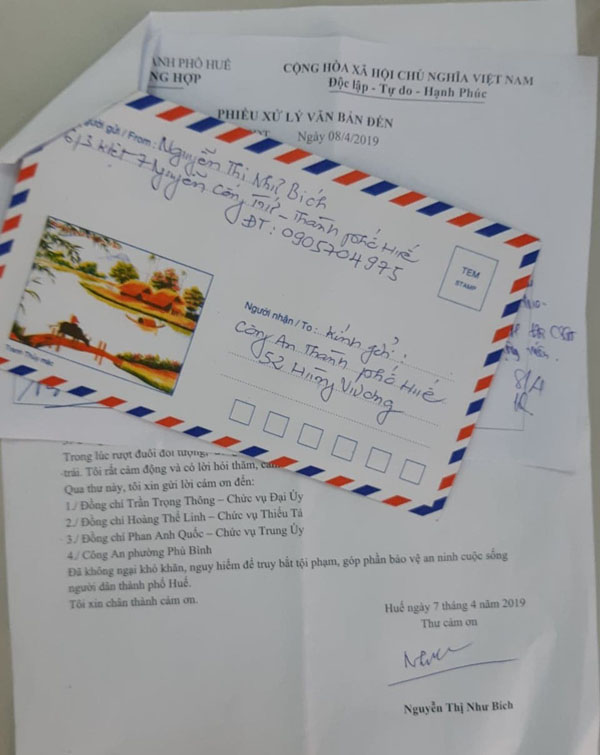 ÀNH PHỐ HUẾ
NG HỢP
CỘNG HÒA XÃ HỘI CHỦ NGHĨA VIỆT NAM
Độc lập - Tự do - Hạnh Phúc
PHIẾU XỬ LÝ VĂN BẢN ĐẾN
Ngày 08/4/2019
gười gửi / From : Nguyễn Thị Như Bích
6/3 kiệt 7 Nguyễn Công Trứ - Thành phố Huế
ĐT: 0905704975
TEM
STAMP
Tranh Thủy mặc
Người nhận / To : Kính gửi :
Công An Thành phố Huế
52 Hùng Vương
8/4
Trong lúc rượt đuổi đối tượng
trái. Tôi rất cảm động và có lời hỏi thăm,
Qua thư này, tôi xin gửi lời cám ơn đến:
1./ Đồng chí Trần Trọng Thông – Chức vụ Đại Úy
2./ Đồng chí Hoàng Thế Linh – Chức vụ Thiếu Tá
3./ Đồng chí Phan Anh Quốc – Chức vụ Trung Úy
4./ Công An phường Phú Bình
Đã không ngại khó khăn, nguy hiểm để truy bắt tội phạm, góp phần bảo vệ an ninh cuộc sống
người dân thành phố Huế.
Tôi xin chân thành cám ơn.
Huế ngày 7 tháng 4 năm 2019
Thư cám ơn
Nguyễn Thị Như Bích